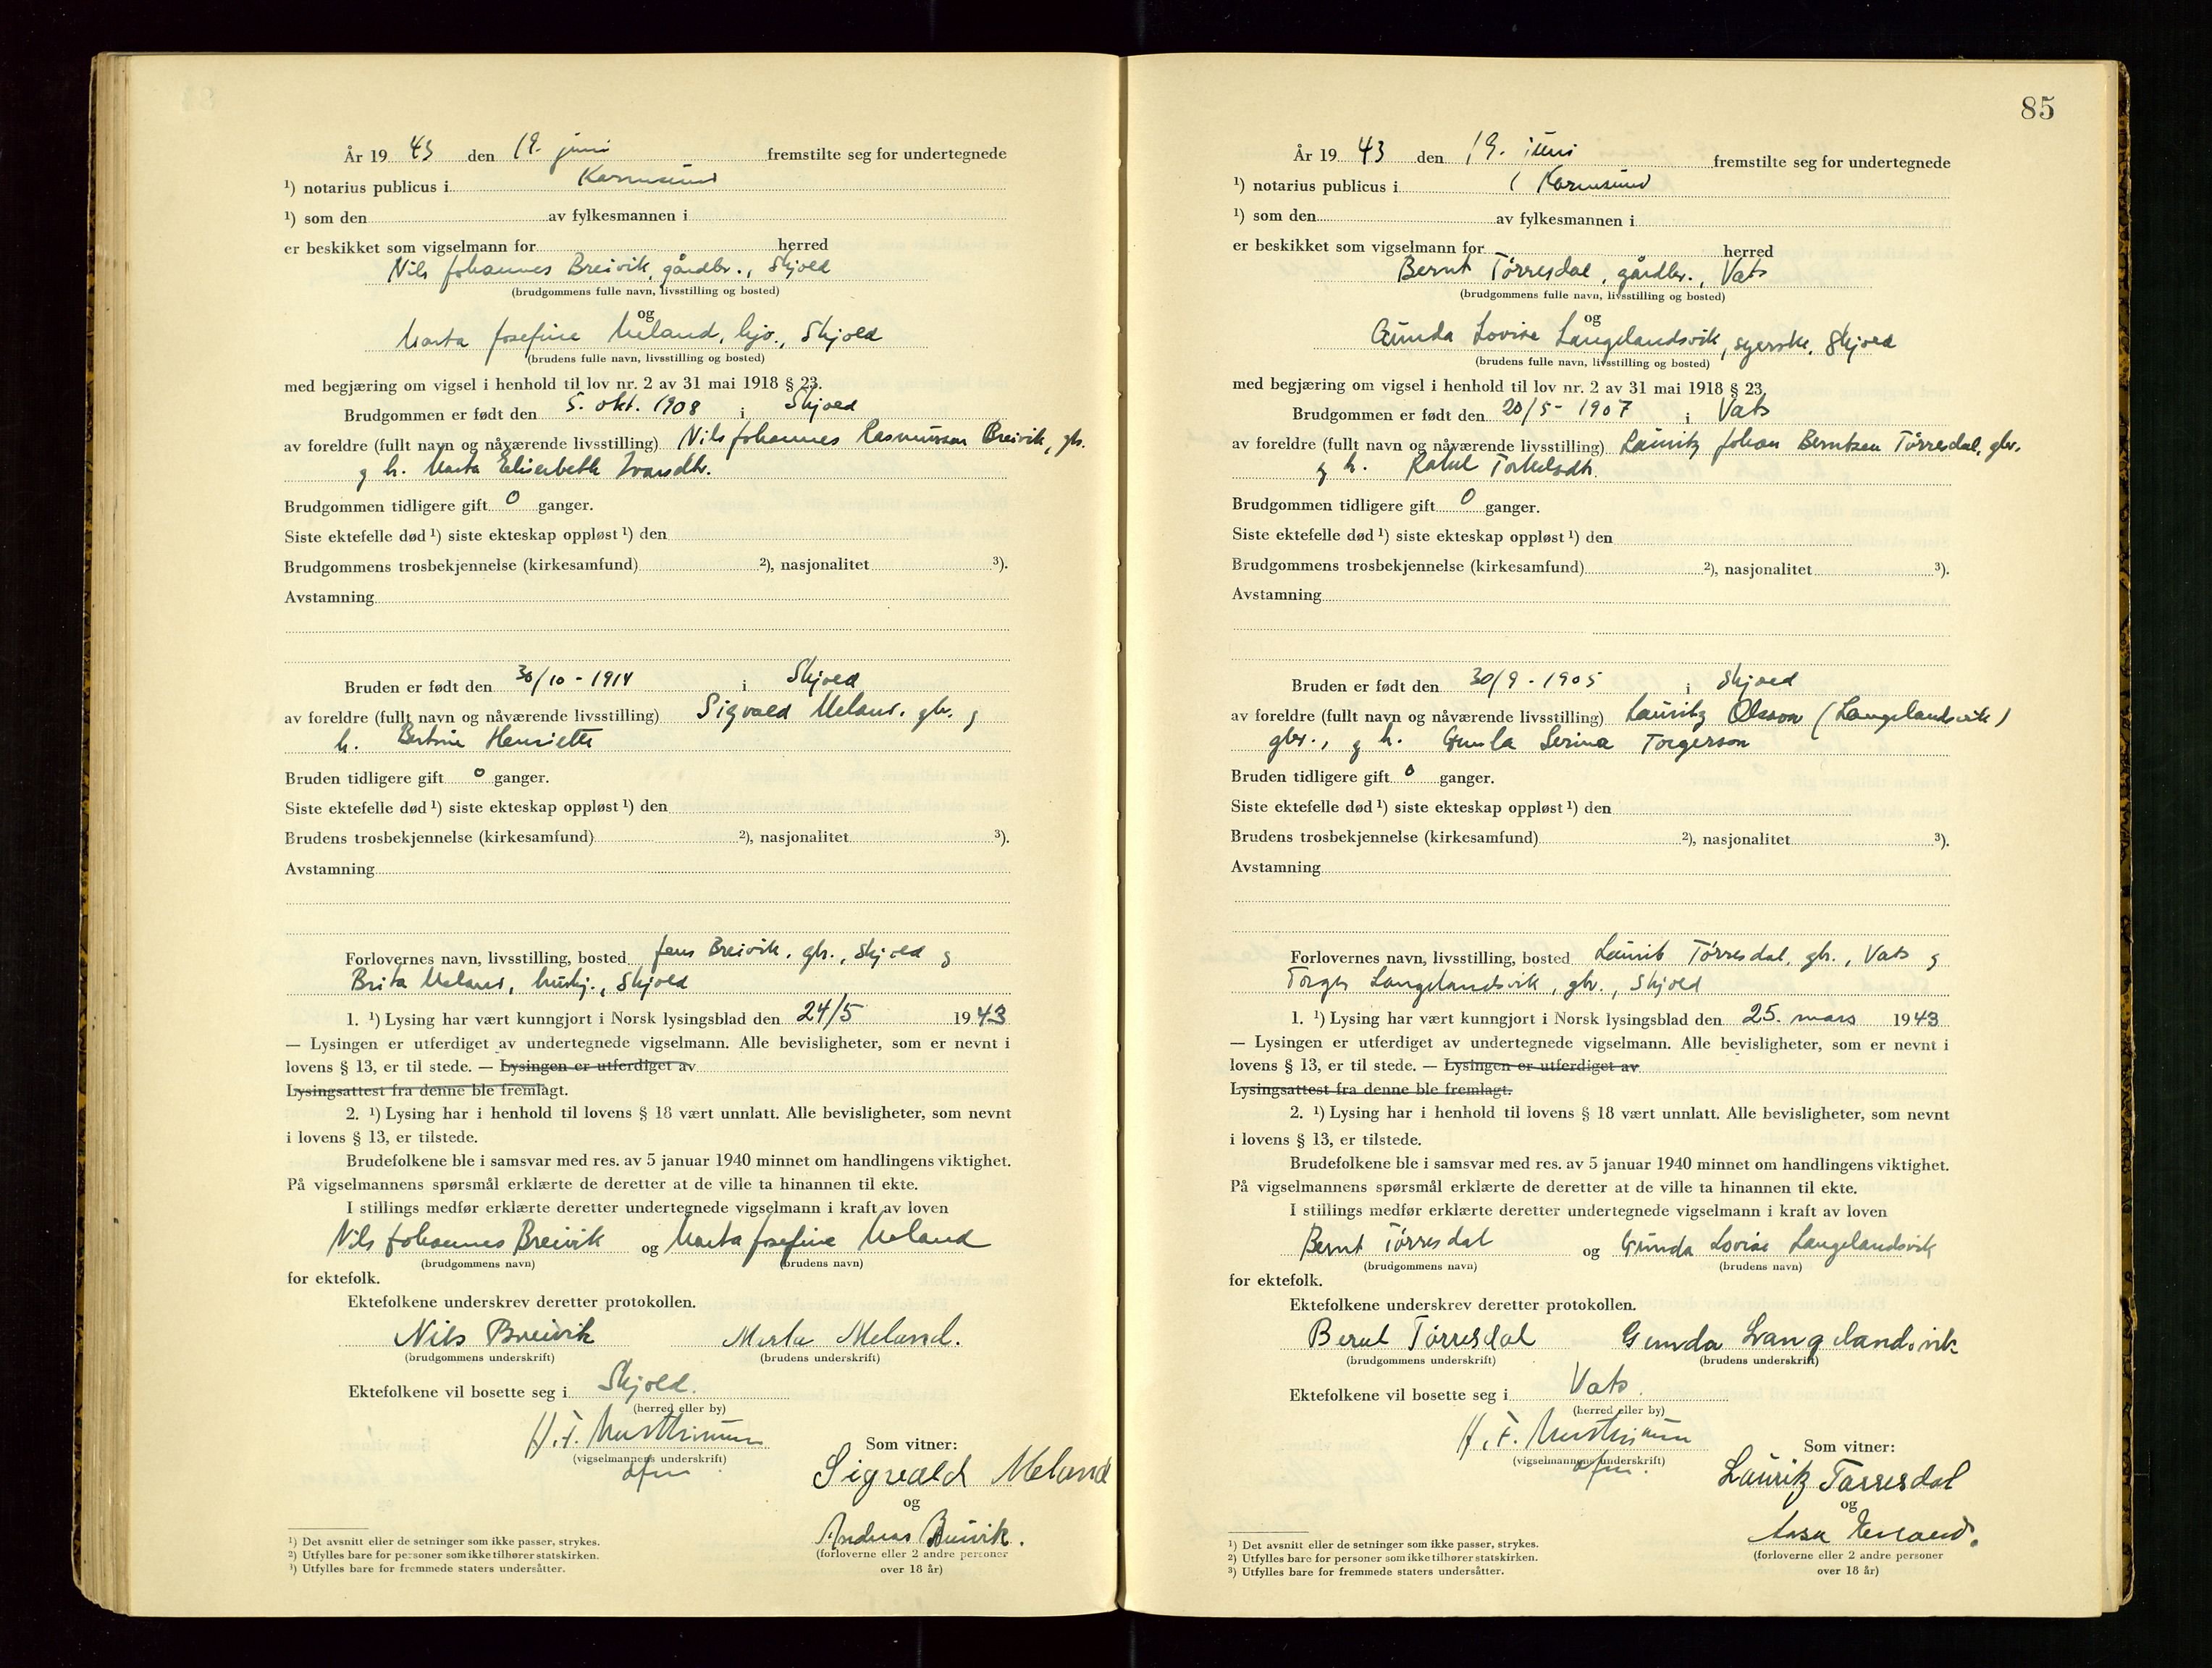 År 19 43 den 19. juni fremstilte seg for undertegnede
¹) notarius publicus i Karmsund
¹) som den av fylkesmannen i
er beskikket som vigselmann for herred
Nils Johannes Breivik, gårdbr., Skjold
(brudgommens fulle navn, livsstilling og bosted)
og
Marta Josefine Meland, hjv., Skjold
(brudens fulle navn, livsstilling og bosted)
med begjæring om vigsel i henhold til lov nr. 2 av 31 mai 1918 § 23.
Brudgommen er født den 5. okt. 1908 i Skjold
av foreldre (fullt navn og nåværende livsstilling) Nils Johannes Rasmussen Breivik, gbr.
og h. Marta Elisabeth Ivarsdtr.
Brudgommen tidligere gift 0 ganger.
Siste ektefelle død ¹) siste ekteskap oppløst ¹) den
Brudgommens trosbekjennelse (kirkesamfund) ²), nasjonalitet ³).
Avstamning
Bruden er født den 30/10 - 1914 i Skjold
av foreldre (fullt navn og nåværende livsstilling) Sigvald Meland, gbr. og
h. Bertine Henriette
Bruden tidligere gift 0 ganger.
Siste ektefelle død ¹) siste ekteskap oppløst ¹) den
Brudens trosbekjennelse (kirkesamfund) ²), nasjonalitet ³).
Avstamning
Forlovernes navn, livsstilling, bosted Jens Breivik, gbr., Skjold og
Brita Meland, hushj., Skjold
1. ¹) Lysing har vært kunngjort i Norsk lysingsblad den 24/5 1943
— Lysingen er utferdiget av undertegnede vigselmann. Alle bevisligheter, som er nevnt i
lovens § 13, er til stede. — Lysingen er utferdiget av
Lysingsattest fra denne ble fremlagt.
2. ¹) Lysing har i henhold til lovens § 18 vært unnlatt. Alle bevisligheter, som nevnt
i lovens § 13, er tilstede.
Brudefolkene ble i samsvar med res. av 5 januar 1940 minnet om handlingens viktighet.
På vigselmannens spørsmål erklærte de deretter at de ville ta hinannen til ekte.
I stillings medfør erklærte deretter undertegnede vigselmann i kraft av loven
Nils Johannes Breivik og Marta Josefine Meland
(brudgommens navn) (brudens navn)
for ektefolk.
Ektefolkene underskrev deretter protokollen.
Nils Breivik Marta Meland.
(brudgommens underskrift) (brudens underskrift)
Ektefolkene vil bosette seg i Skjold.
(herred eller by)
H. F.
(vigselmannens underskrift)
Som vitner:
Sigvald Meland
og
Andreas Breivik.
(forloverne eller 2 andre personer
over 18 år)
¹) Det avsnitt eller de setninger som ikke passer, strykes.
²) Utfylles bare for personer som ikke tilhører statskirken.
³) Utfylles bare for fremmede staters undersåtter.
85
År 19 43 den 19. juni fremstilte seg for undertegnede
¹) notarius publicus i Karmsund
¹) som den av fylkesmannen i
er beskikket som vigselmann for herred
Bernt Tørresdal, gårdbr., Vats
(brudgommens fulle navn, livsstilling og bosted)
og
Gunda Lovise Langelandsvik, syerske, Skjold
(brudens fulle navn, livsstilling og bosted)
med begjæring om vigsel i henhold til lov nr. 2 av 31 mai 1918 § 23.
Brudgommen er født den 20/5 - 1907 i Vats
av foreldre (fullt navn og nåværende livsstilling) Lauritz Johan Berntsen Tørresdal, gbr.
og h. Rakel Torkelsdtr.
Brudgommen tidligere gift 0 ganger.
Siste ektefelle død ¹) siste ekteskap oppløst ¹) den
Brudgommens trosbekjennelse (kirkesamfund) ²), nasjonalitet ³).
Avstamning
Bruden er født den 30/9 - 1905 i Skjold
av foreldre (fullt navn og nåværende livsstilling) Lauritz Olsson (Langelandsvik)
gbr., og h. Gunla Serina Torgerson
Bruden tidligere gift 0 ganger.
Siste ektefelle død ¹) siste ekteskap oppløst ¹) den
Brudens trosbekjennelse (kirkesamfund) ²), nasjonalitet ³).
Avstamning
Forlovernes navn, livsstilling, bosted Laurits Tørresdal, gbr., Vats og
Torger Langelandsvik, gbr., Skjold
1. ¹) Lysing har vært kunngjort i Norsk lysingsblad den 25. mars 1943
— Lysingen er utferdiget av undertegnede vigselmann. Alle bevisligheter, som er nevnt i
lovens § 13, er til stede. — Lysingen er utferdiget av
Lysingsattest fra denne ble fremlagt.
2. ¹) Lysing har i henhold til lovens § 18 vært unnlatt. Alle bevisligheter, som nevnt
i lovens § 13, er tilstede.
Brudefolkene ble i samsvar med res. av 5 januar 1940 minnet om handlingens viktighet.
På vigselmannens spørsmål erklærte de deretter at de ville ta hinannen til ekte.
I stillings medfør erklærte deretter undertegnede vigselmann i kraft av loven
Bernt Tørresdal og Gunda Lovise Langelandsvik
(brudgommens navn) (brudens navn)
for ektefolk.
Ektefolkene underskrev deretter protokollen.
Bernt Tørresdal Gunda Langelandsvik
(brudgommens underskrift) (brudens underskrift)
Ektefolkene vil bosette seg i Vats.
(herred eller by)
H. F.
(vigselmannens underskrift)
Som vitner:
Lauritz Tørresdal
og
(forloverne eller 2 andre personer
over 18 år)
¹) Det avsnitt eller de setninger som ikke passer, strykes.
²) Utfylles bare for personer som ikke tilhører statskirken.
³) Utfylles bare for fremmede staters undersåtter.